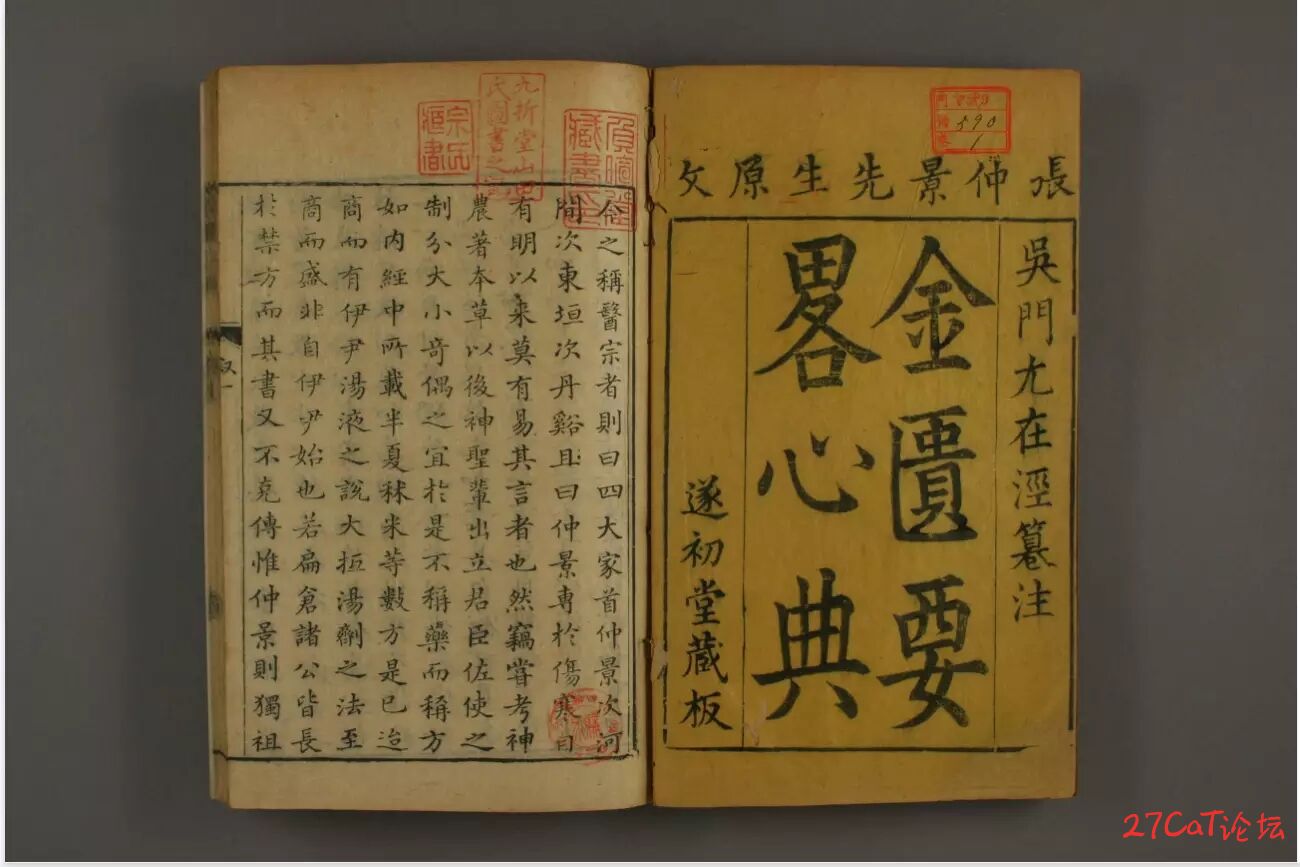 張仲景先生原文
吳門尤在涇纂注
金匱要
畧心典
遂初堂藏板
今之稱醫宗者則曰四大家首仲景次河
間次東垣次丹谿且曰仲景専於傷寒自
有明以来莫有易其言者也然竊嘗考神
農著本草以後神聖輩出立君臣佐使之
制分大小奇偶之宜於是不稱藥而稱方
如内經中所載半夏秫米等數方是已迨
商而有伊尹湯液之說大抵湯劑之法至
商而盛非自伊尹始也若扁倉諸公皆長
於禁方而其書又不克傳惟仲景則獨祖
叙一
九折堂山田
氏圖書之記
宗氏
藏書
590
1
27CaT论坛